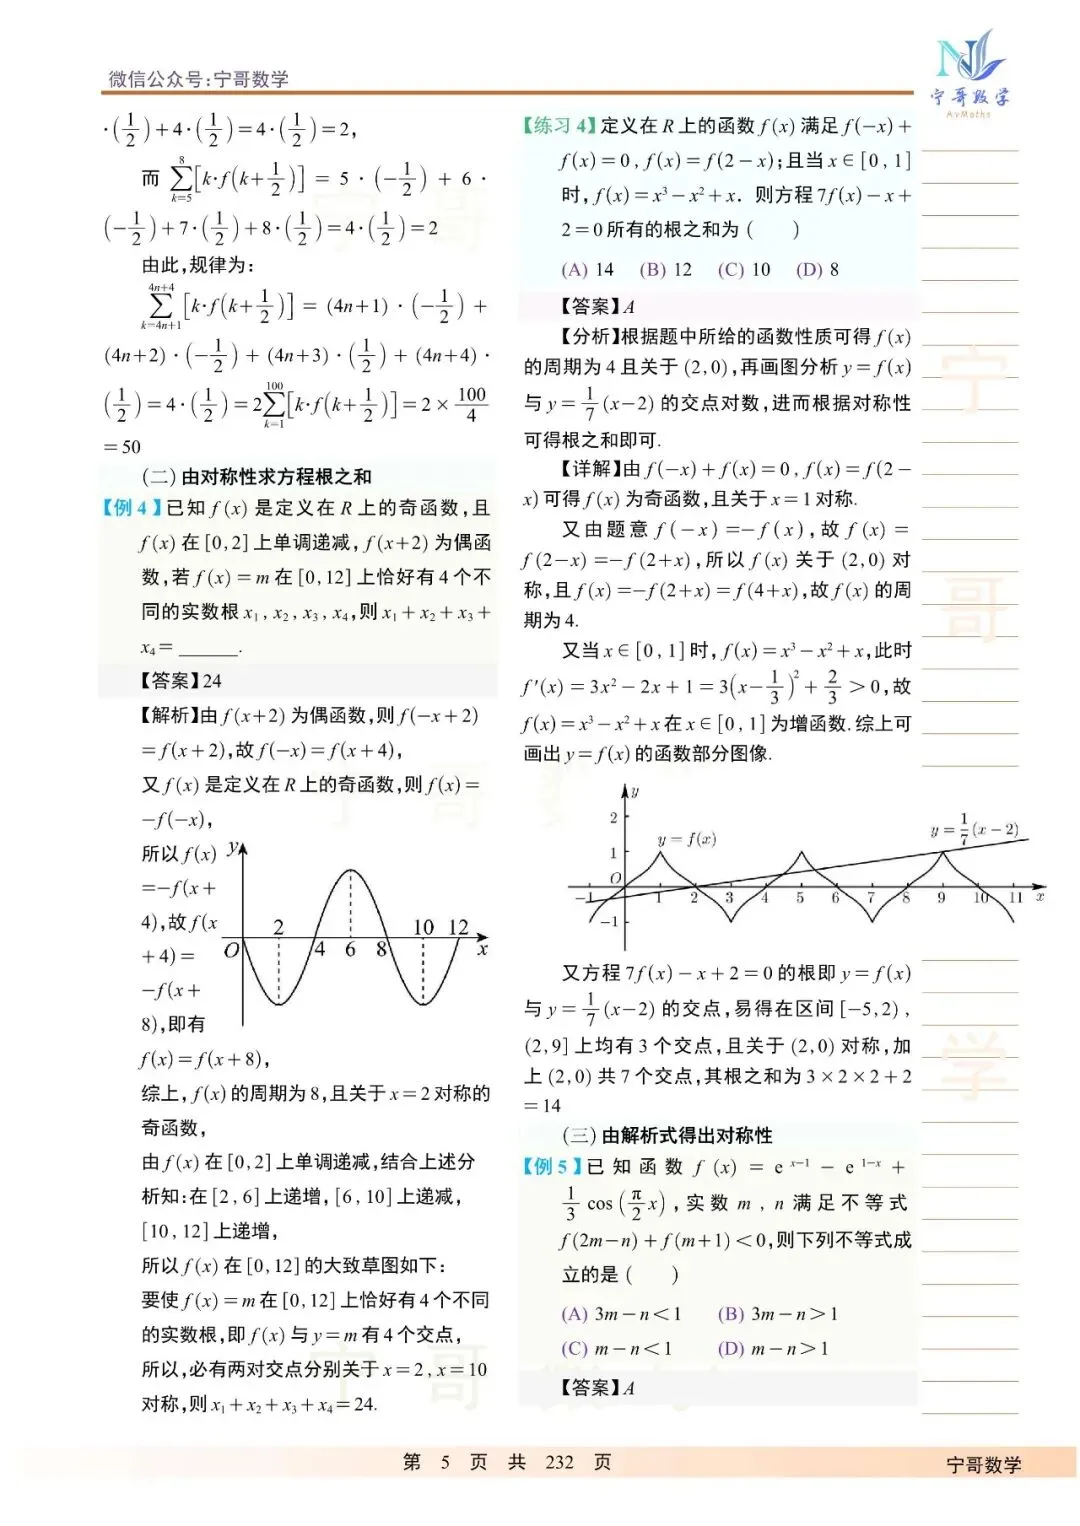 微信公众号:宁哥数学
宁哥数学
AvMaths
·(1/2)+4·(1/2)=4·(1/2)=2,
而 ∑_{k=5}^{8}[k·f(k+1/2)] = 5·(-1/2) + 6·
(-1/2)+7·(1/2)+8·(1/2)=4·(1/2)=2
由此,规律为:
∑_{k=4n+1}^{4n+4}[k·f(k+1/2)] = (4n+1)·(-1/2) +
(4n+2)·(-1/2) + (4n+3)·(1/2) + (4n+4)·
(1/2)=4·(1/2)=2∑_{k=1}^{100}[k·f(k+1/2)]=2×100/4
=50
(二)由对称性求方程根之和
【例4】已知 f(x) 是定义在 R 上的奇函数,且
f(x) 在 [0,2] 上单调递减,f(x+2) 为偶函
数,若 f(x)=m 在 [0,12] 上恰好有 4 个不
同的实数根 x₁,x₂,x₃,x₄,则 x₁+x₂+x₃+
x₄= ______.
【答案】24
【解析】由 f(x+2) 为偶函数,则 f(-x+2)
=f(x+2),故 f(-x)=f(x+4),
又 f(x) 是定义在 R 上的奇函数,则 f(x)=
-f(-x),
所以 f(x)
=-f(x+
4),故 f(x
+4)=
-f(x+
8),即有
y
2 10 12
O 4 6 8 x
f(x)=f(x+8),
综上,f(x) 的周期为 8,且关于 x=2 对称的
奇函数,
由 f(x) 在 [0,2] 上单调递减,结合上述分
析知:在 [2,6] 上递增,[6,10] 上递减,
[10,12] 上递增,
所以 f(x) 在 [0,12] 的大致草图如下:
要使 f(x)=m 在 [0,12] 上恰好有 4 个不同
的实数根,即 f(x) 与 y=m 有 4 个交点,
所以,必有两对交点分别关于 x=2,x=10
对称,则 x₁+x₂+x₃+x₄=24.
【练习4】定义在 R 上的函数 f(x) 满足 f(-x)+
f(x)=0,f(x)=f(2-x);且当 x∈[0,1]
时,f(x)=x³-x²+x. 则方程 7f(x)-x+
2=0 所有的根之和为 ( )
(A) 14 (B) 12 (C) 10 (D) 8
【答案】A
【分析】根据题中所给的函数性质可得 f(x)
的周期为 4 且关于 (2,0),再画图分析 y=f(x)
与 y=1/7(x-2) 的交点对数,进而根据对称性
可得根之和即可.
【详解】由 f(-x)+f(x)=0,f(x)=f(2-
x) 可得 f(x) 为奇函数,且关于 x=1 对称.
又由题意 f(-x)=-f(x),故 f(x)=
f(2-x)=-f(2+x),所以 f(x) 关于 (2,0) 对
称,且 f(x)=-f(2+x)=f(4+x),故 f(x) 的周
期为 4.
又当 x∈[0,1] 时,f(x)=x³-x²+x,此时
f′(x)=3x²-2x+1=3(x-1/3)²+2/3>0,故
f(x)=x³-x²+x 在 x∈[0,1] 为增函数.综上可
画出 y=f(x) 的函数部分图像.
y
2
y=f(x) y=1/7(x-2)
1
O
-1 1 2 3 4 5 6 7 8 9 10 11 x
-1
又方程 7f(x)-x+2=0 的根即 y=f(x)
与 y=1/7(x-2) 的交点,易得在区间 [-5,2),
(2,9] 上均有 3 个交点,且关于 (2,0) 对称,加
上 (2,0) 共 7 个交点,其根之和为 3×2×2+2
=14
(三)由解析式得出对称性
【例5】已知函数 f(x)=e^{x-1}-e^{1-x}+
1/3 cos(π/2 x),实数 m,n 满足不等式
f(2m-n)+f(m+1)<0,则下列不等式成
立的是 ( )
(A) 3m-n<1 (B) 3m-n>1
(C) m-n<1 (D) m-n>1
【答案】A
宁
哥
学
第 5 页 共 232 页
宁哥数学